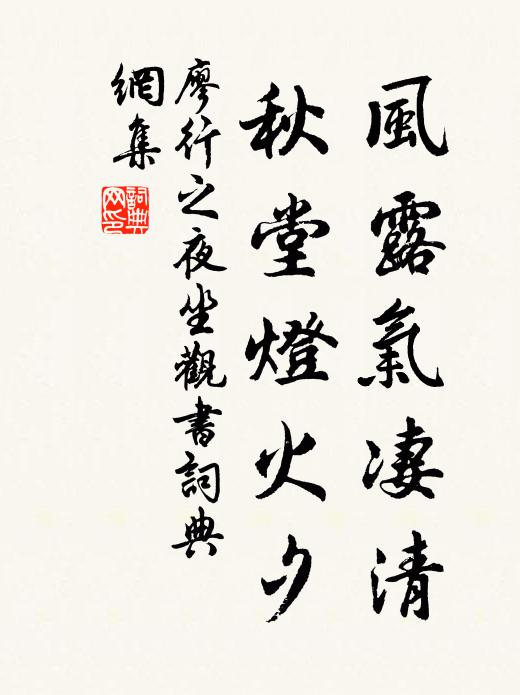 風露氣凄清
秋堂燈火夕
廖行之夜坐觀書詞典
網集
詞典
網印